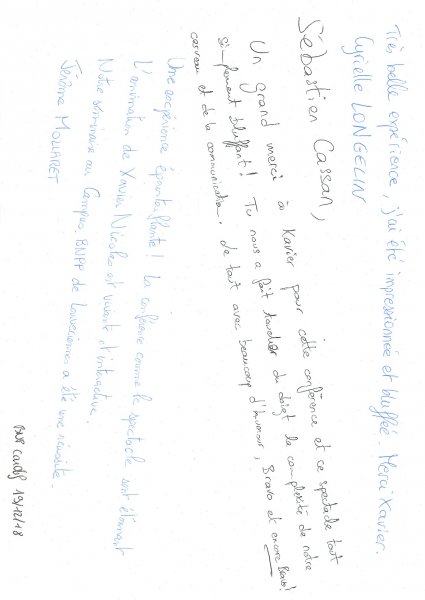 Très belle expérience, j'ai été impressionnée et bluffée. Merci Xavier.
Cyrielle LONGELIN
Sébastien Cassan,
Un grand merci à Xavier pour cette conférence et ce spectacle tout
simplement bluffant! Tu nous a fait toucher du doigt la complexité de notre
cerveau et de la communication. Le tout avec beaucoup d'humour, Bravo et encore Bravo!
Une expérience époustouflante! La conférence comme le spectacle sont étonnant
L'animation de Xavier Nicolas est vivante et interactive.
Notre séminaire au Campus BNPP de Louveciennes a été une réussite.
Jérôme
BNP Cardif 19/12/18